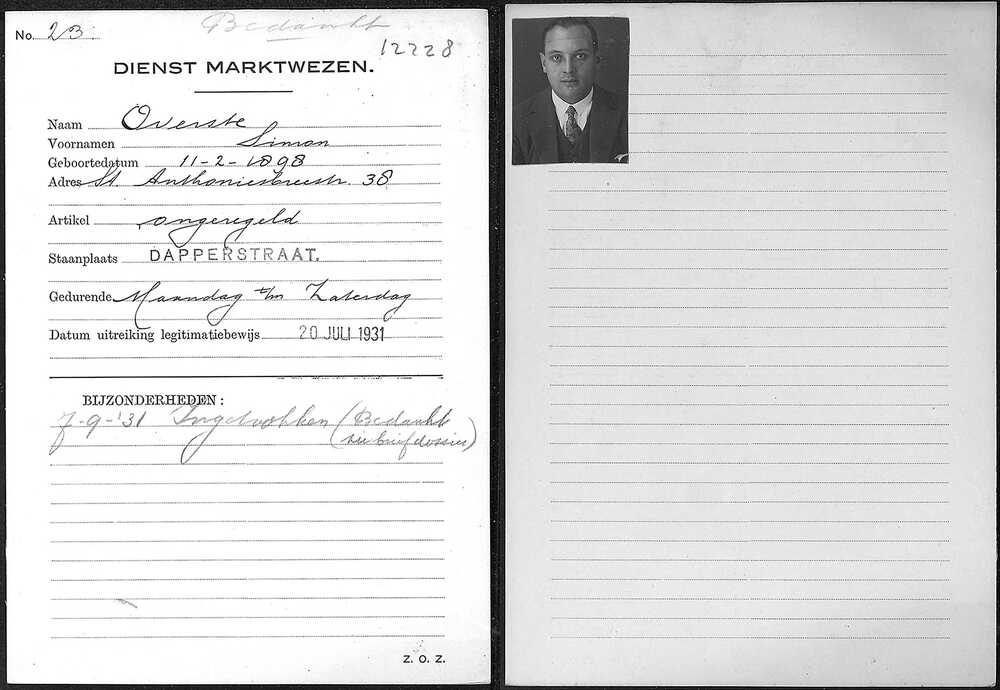 Bedankt
No. 23.
12228
DIENST MARKTWEZEN.
Naam Overste
Voornamen Simon
Geboortedatum 11-2-1898
Adres St. Anthoniesbreestr. 38
Artikel ongeregeld
Staanplaats DAPPERSTRAAT.
Gedurende Maandag t/m Zaterdag
Datum uitreiking legitimatiebewijs 20 JULI 1931
BIJZONDERHEDEN:
7-9-'31 Ingetrokken (Bedankt
zie brief dossier)
Z. O. Z.